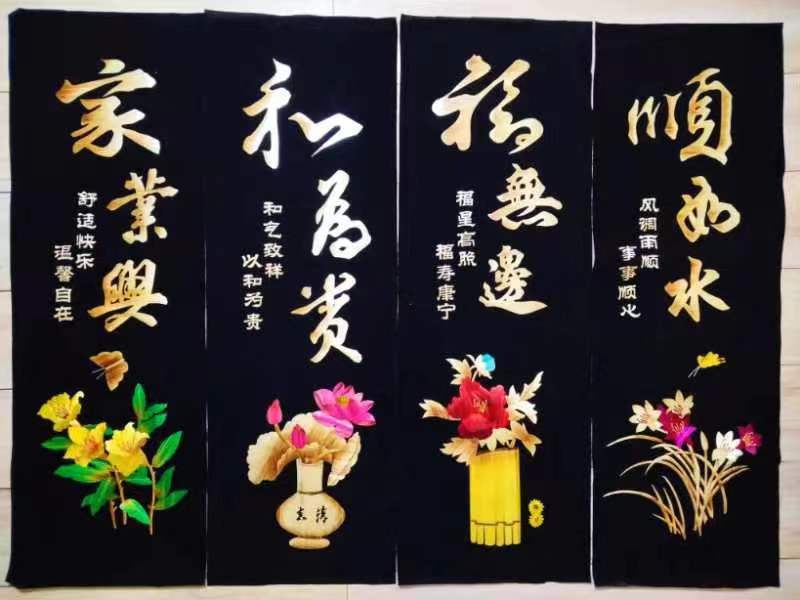 家業興
舒适快乐
温馨自在
和為贵
和气致祥
以和为贵
福無邊
福星高照
福寿康宁
順如水
风调雨顺
事事顺心